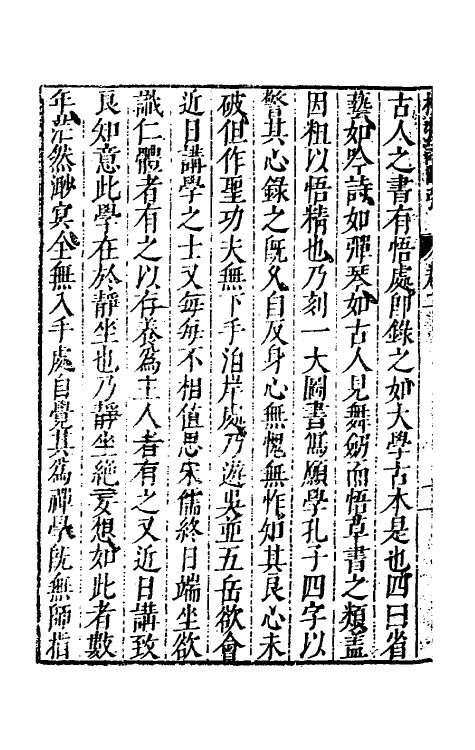 古人之書有悟處即錄之如大學古本是也四曰省
藝如吟詩如彈琴如古人見舞劒而悟草書之類蓋
因粗以悟精也乃刻一大圖書寫願學孔子四字以
警其心錄之既久自反身心無愧無怍知其良心未
破但作聖功夫無下手泊岸處乃遊吳並五岳欲會
近日講學之士又每每不相值思宋儒終日端坐欲
識仁體者有之以存養為主人者有之又近日講致
良知意此學在於靜坐也乃靜坐絕妄想如此者數
年茫然渺冥全無入手處自覺其為禪學既無師指